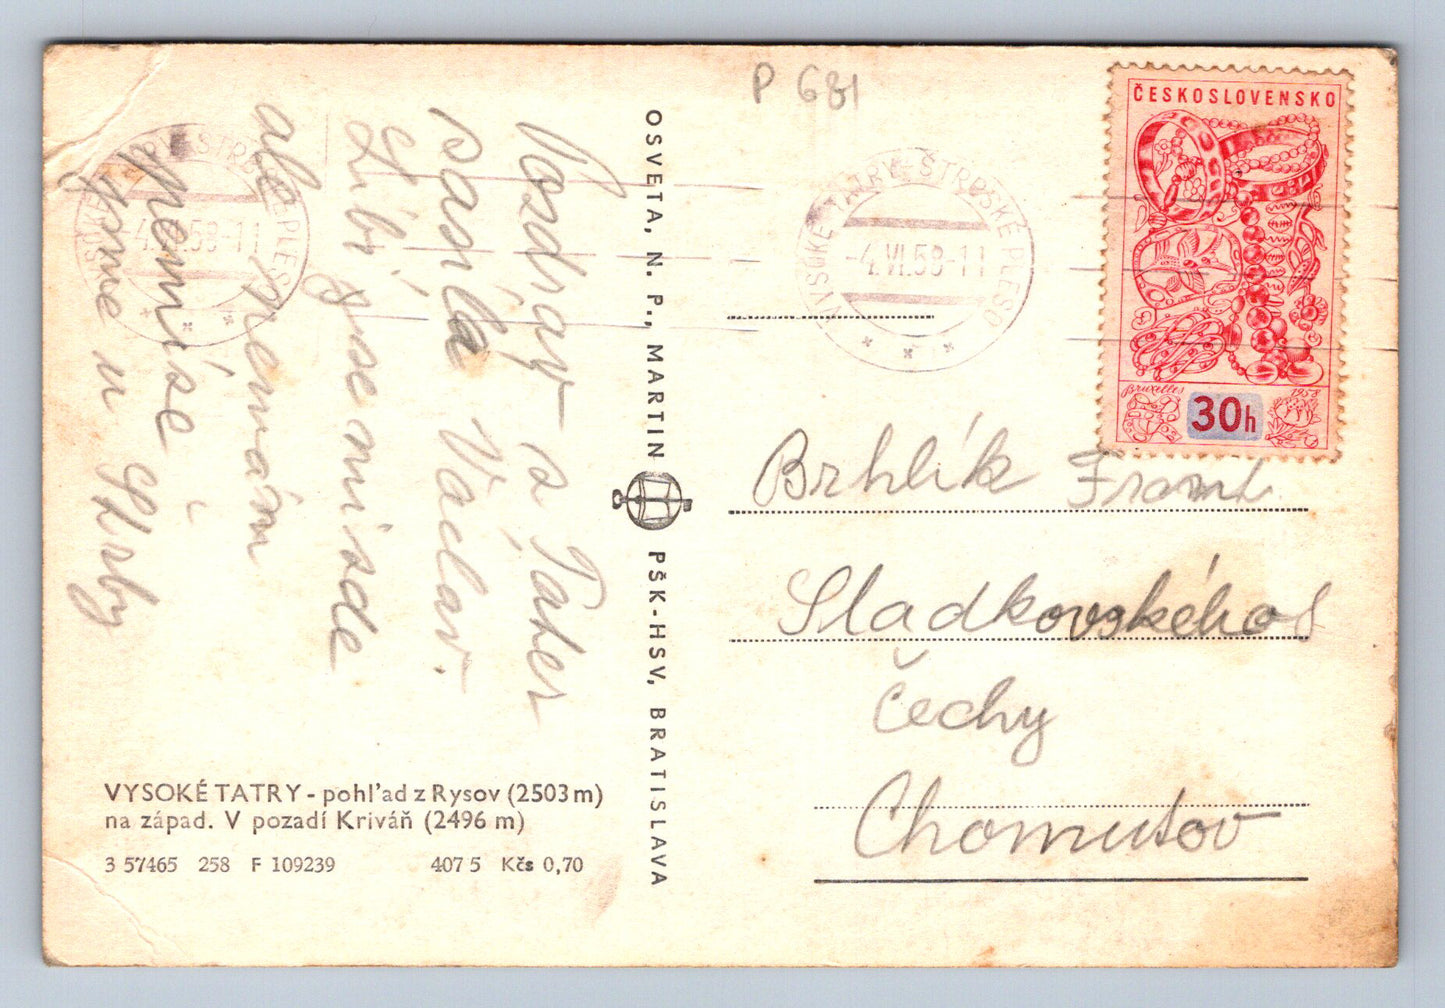 P 681
ČESKOSLOVENSKO
Bruxelles 1958
30h
VYSOKÉ TATRY-ŠTRBSKÉ PLESO
-4.VI.58-11
VYSOKÉ TATRY-ŠTRBSKÉ PLESO
-4.VI.58-11
Pozdrav s Tater
posílá Václav
Líbí se mi sde
ale nemám
spemíse i
jsme u Štrby
OSVETA, N. P., MARTIN PŠK-HSV, BRATISLAVA
Brhlík Frant.
Sladkovského
Čechy
Chomutov
VYSOKÉ TATRY - pohľad z Rysov (2503 m)
na západ. V pozadí Kriváň (2496 m)
3 57465 258 F 109239 407 5 Kčs 0,70